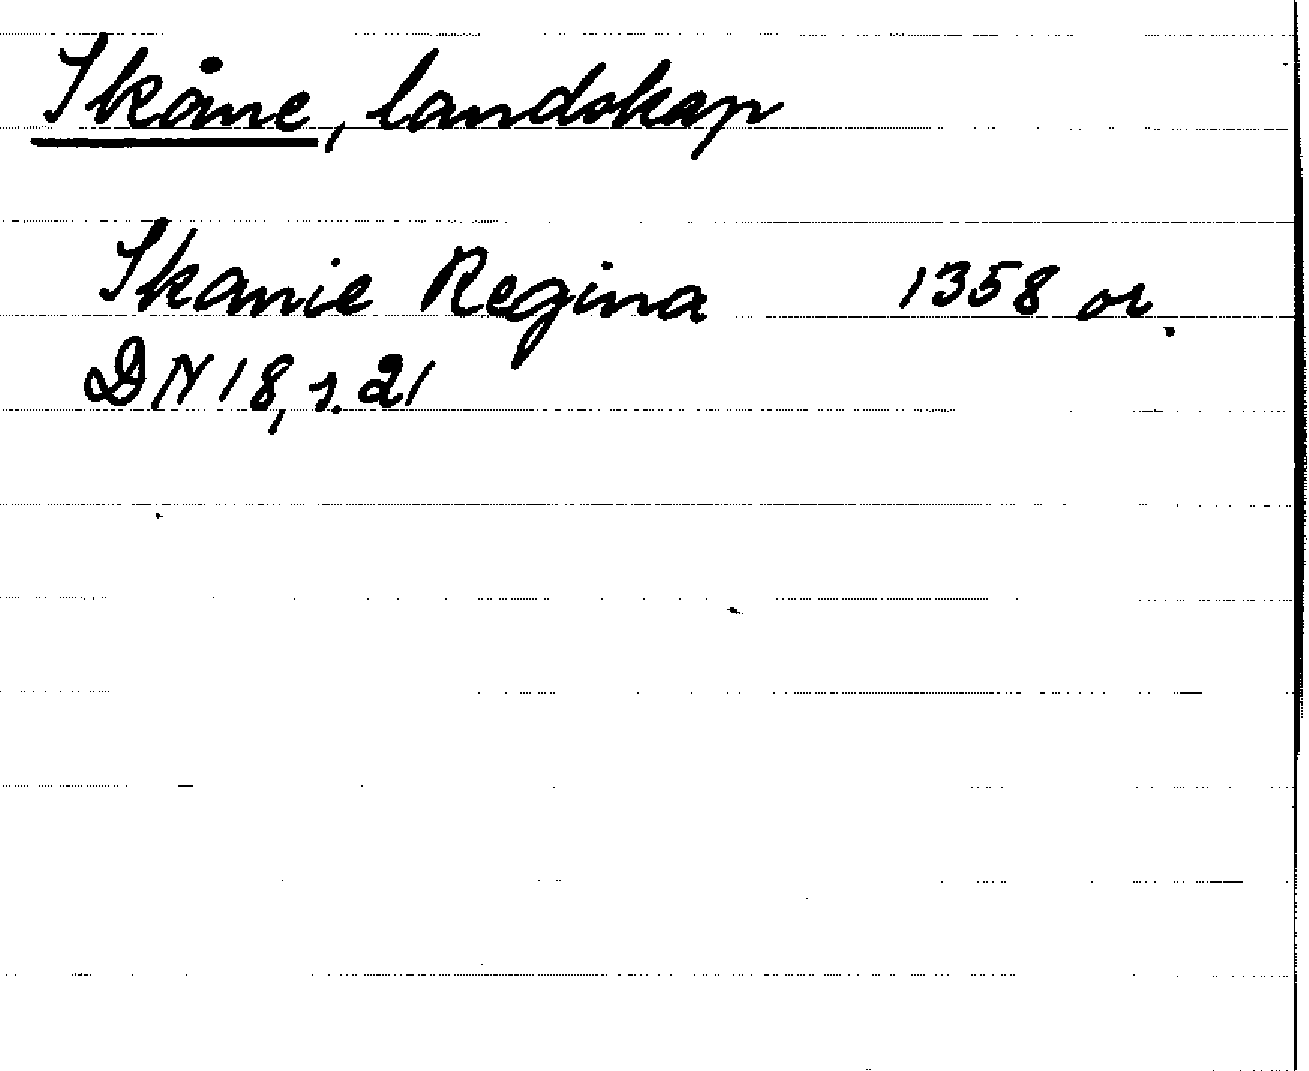 Skåne, landskap
Skanie Regina 1358 or.
DN 18, s. 21